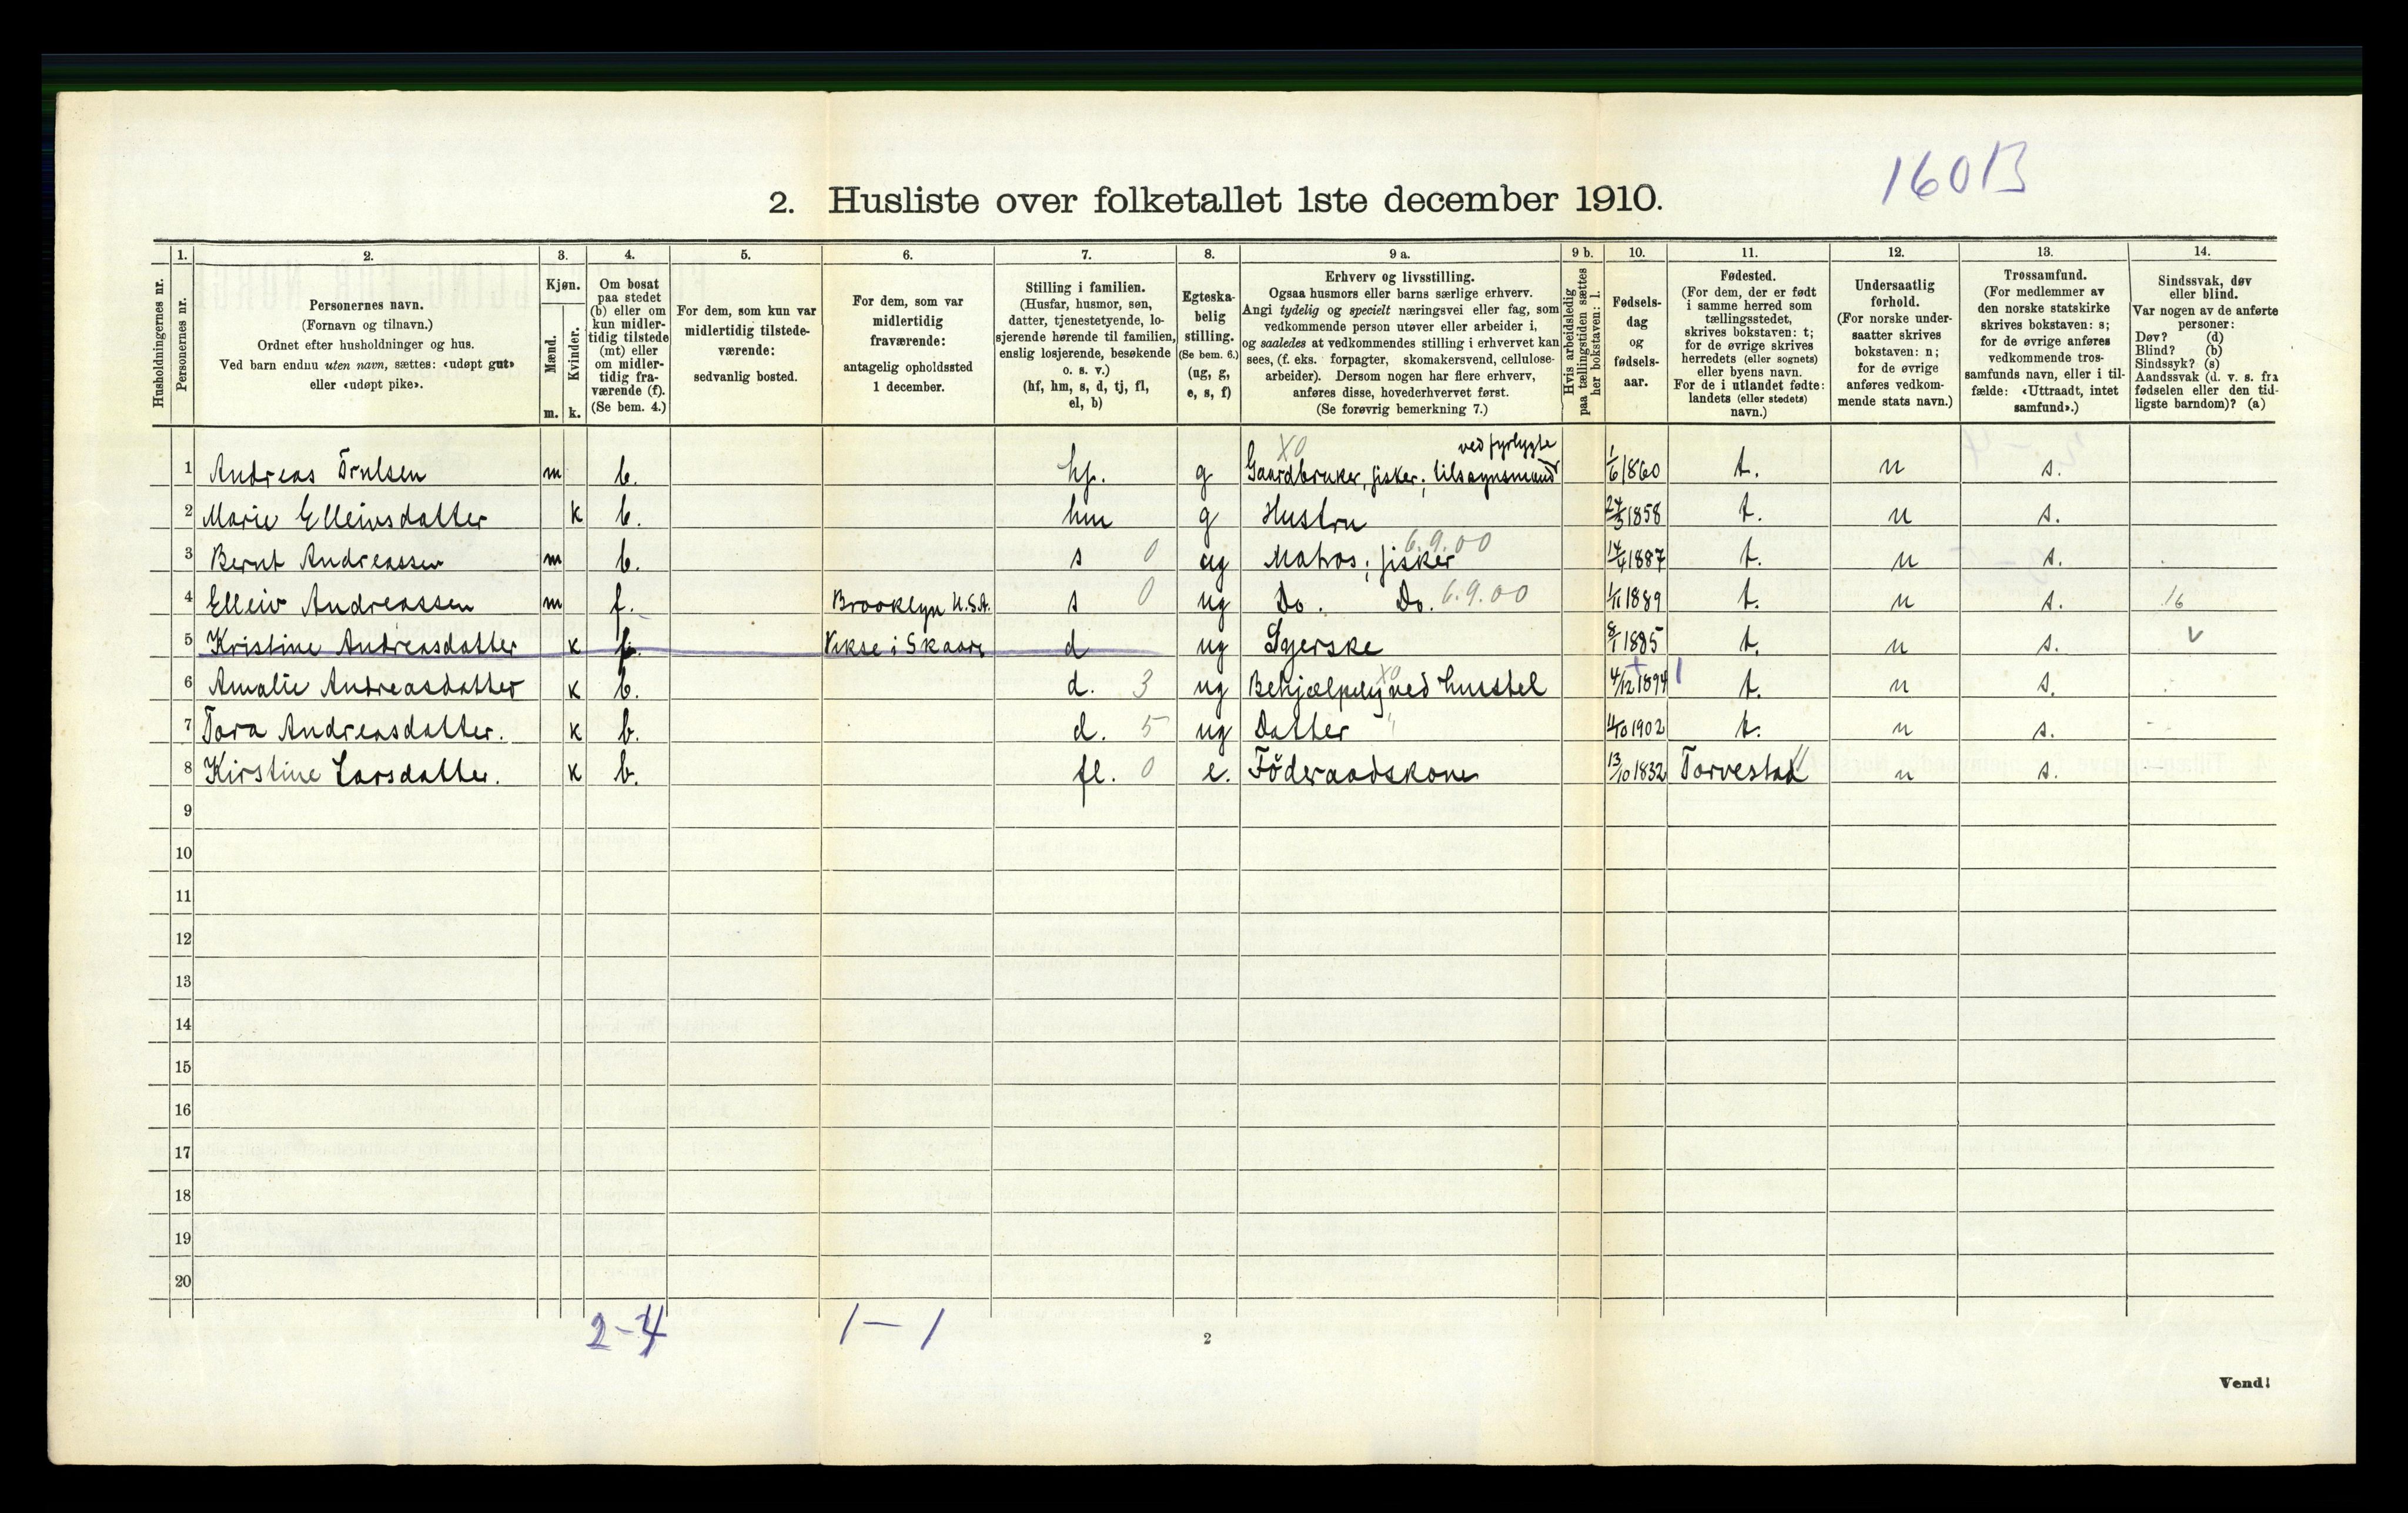 160B
2. Husliste over folketallet 1ste december 1910.
Husholdningernes nr.
1.
Personernes nr.
2.
Personernes navn.
(Fornavn og tilnavn.)
Ordnet efter husholdninger og hus.
Ved barn endnu uten navn, sættes: «udøpt gut»
eller «udøpt pike».
3.
Kjøn.
Mænd.
Kvinder.
m. k.
4.
Om bosat
paa stedet
(b) eller om
kun midler-
tidig tilstede
(mt) eller
om midler-
tidig fra-
værende (f).
(Se bem. 4.)
5.
For dem, som kun var
midlertidig tilstede-
værende:
sedvanlig bosted.
6.
For dem, som var
midlertidig
fraværende:
antagelig opholdssted
1 december.
7.
Stilling i familien.
(Husfar, husmor, søn,
datter, tjenestetyende, lo-
sjerende hørende til familien,
enslig losjerende, besøkende
o. s. v.)
(hf, hm, s, d, tj, fl,
el, b)
8.
Egteska-
belig
stilling.
(Se bem. 6.)
(ug, g,
e, s, f)
9 a.
Erhverv og livsstilling.
Ogsaa husmors eller barns særlige erhverv.
Angi tydelig og specielt næringsvei eller fag, som
vedkommende person utøver eller arbeider i,
og saaledes at vedkommendes stilling i erhvervet kan
sees, (f. eks. forpagter, skomakersvend, cellulose-
arbeider). Dersom nogen har flere erhverv,
anføres disse, hovederhvervet først.
(Se forøvrig bemerkning 7.)
9 b.
Hvis arbeidsledig
paa tællingstiden sættes
her bokstaven: l.
10.
Fødsels-
dag
og
fødsels-
aar.
11.
Fødested.
(For dem, der er født
i samme herred som
tællingsstedet,
skrives bokstaven: t;
for de øvrige skrives
herredets (eller sognets)
eller byens navn.
For de i utlandet fødte:
landets (eller stedets)
navn.)
12.
Undersaatlig
forhold.
(For norske under-
saatter skrives
bokstaven: n;
for de øvrige
anføres vedkom-
mende stats navn.)
13.
Trossamfund.
(For medlemmer av
den norske statskirke
skrives bokstaven: s;
for de øvrige anføres
vedkommende tros-
samfunds navn, eller i til-
fælde: «Uttraadt, intet
samfund».)
14.
Sindssvak, døv
eller blind.
Var nogen av de anførte
personer:
Døv? (d)
Blind? (b)
Sindssyk? (s)
Aandssvak (d. v. s. fra
fødselen eller den tid-
ligste barndom)? (a)
X0 ved fyrlygte
1 Andreas Trulsen m b. hf. g Gaardbruker, fisker, tilsynsmand 1/6 1860 t. n s.
2 Marie Elleivsdatter k b. hm g Hustru 24/3 1858 t. n s.
6.9.00
3 Bernt Andreassen m b. s 0 ug Matros; fisker 14/4 1887 t. n s.
4 Elleiv Andreassen m f. Brooklyn U.S.A. s 0 ug Do. Do. 6.9.00 1/11 1889 t. n s. 16
5 Kristine Andreasdatter k f. Vikse i Skaare d ug Syerske 8/1 1885 t. n s. v
6 Amalie Andreasdatter k b. d. 3 ug Behjælpelig X0 ved husstel 4/12 1894 1 t. n s.
7 Tora Andreasdatter. k b. d. 5 ug Datter " 11/10 1902 t. n s.
8 Kirstine Larsdatter. k b. fl. 0 e. Föderaadskone 13/10 1832 Torvestad n s.
9
10
11
12
13
14
15
16
17
18
19
20
2-4 1-1
2
Vend!